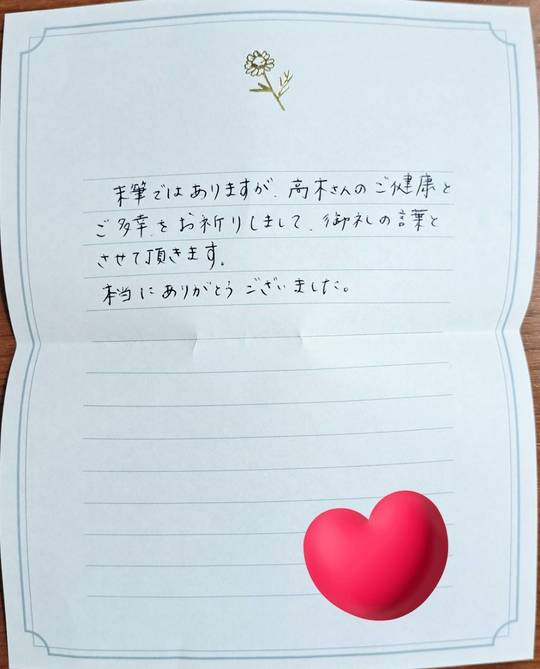 末筆ではありますが、高木さんのご健康と
ご多幸をお祈りしまして、御礼の言葉と
させて頂きます。
本当にありがとうございました。